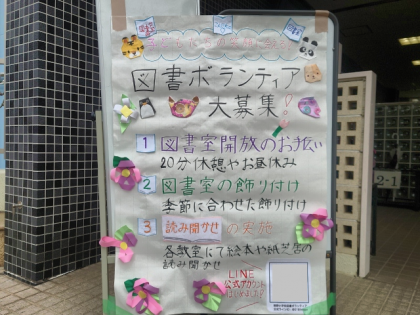 図書ボランティア
大募集!
1 図書室開放のお手伝い
20分休憩やお昼休み
2 図書室の飾り付け
季節に合わせた飾り付け
3 読み聞かせの実施
各教室にて絵本や紙芝居の
読み聞かせ
LINE
公式アカウント
はじめました!
2-1